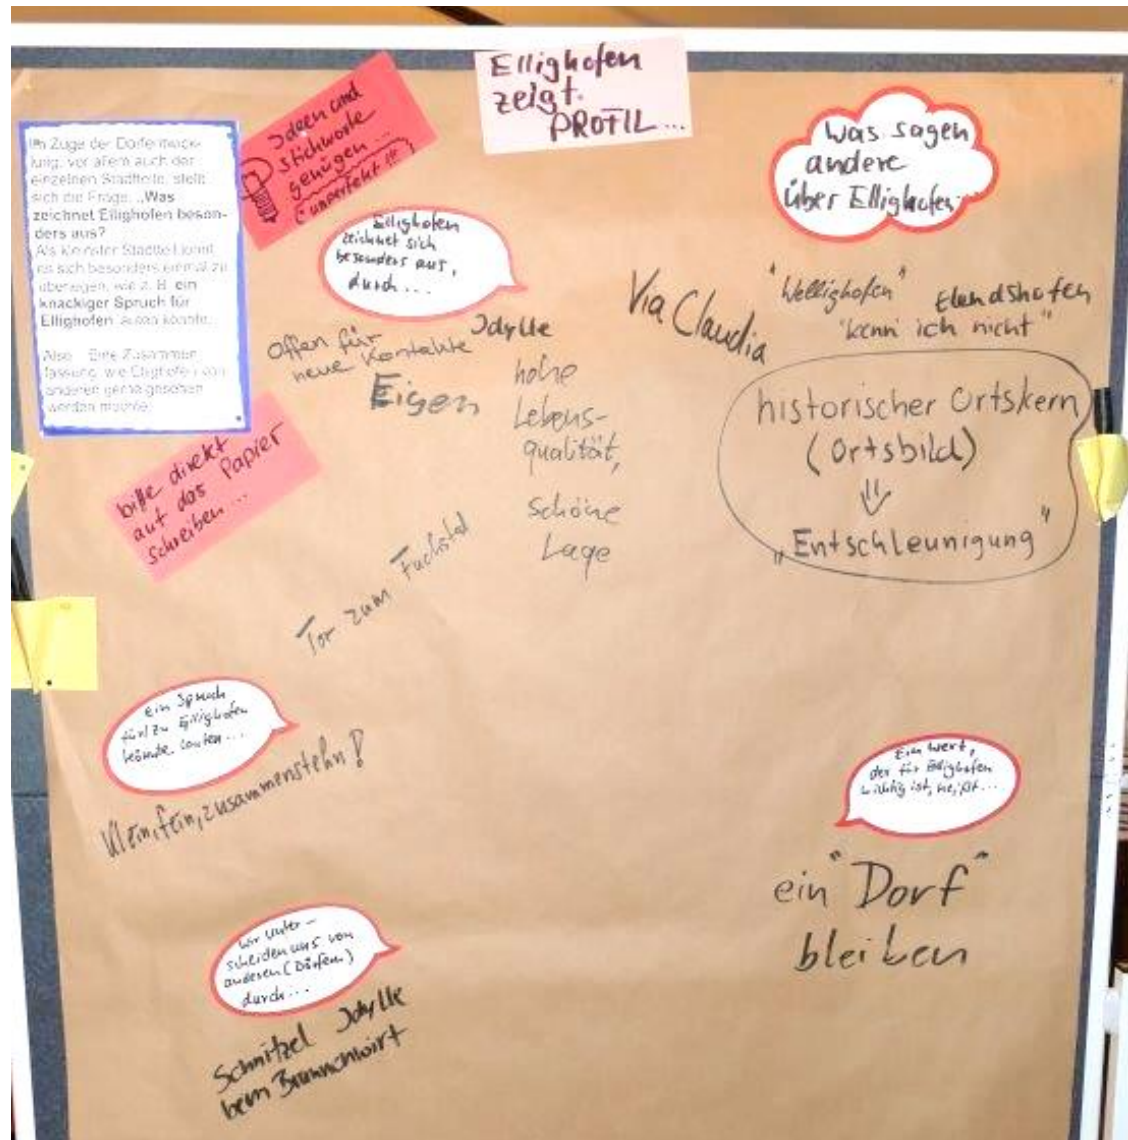 Ellighofen
zeigt
PROFIL...
Im Zuge der Dorfentwick-
lung, vor allem auch der
einzelnen Stadtteile, stellt
sich die Frage: „Was
zeichnet Ellighofen beson-
ders aus?
Als kleinster Stadtteil lohnt
es sich besonders einmal zu
überlegen, wie z. B. ein
knackiger Spruch für
Ellighofen lauten könnte.
Also: Eine Zusammen-
fassung, wie Ellighofen von
anderen gerne gesehen
werden möchte.
Ideen und
Stichworte
genügen...
(unperfekt!!!)
bitte direkt
auf das Papier
schreiben...
Ellighofen
zeichnet sich
besonders aus,
durch...
Offen für
neue Kontakte
Idylle
Eigen
hohe
Lebens-
qualität,
schöne
Lage
Tor zum Fuchstal
Was sagen
andere
über Ellighofen...
Via Claudia
"Wellighofen"
Elendshofen
"kenn ich nicht"
historischer Ortskern
(Ortsbild)
⇓
„Entschleunigung"
ein Spruch
für/zu Ellighofen
könnte lauten...
Klein, fein, zusammenstehn!
Ein Wert,
der für Ellighofen
wichtig ist, heißt...
ein "Dorf"
bleiben
Wir unter-
scheiden uns von
anderen (Dörfern)
durch...
Schnitzel Idylle
beim Brunnenwirt